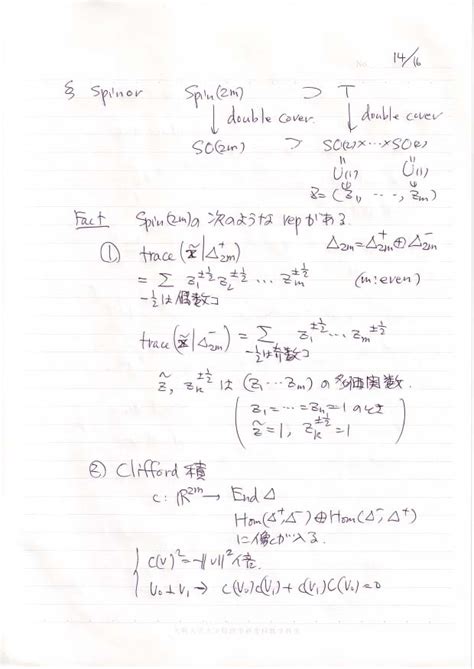 14/16
§ Spinor Spin(2m) ⊃ T
↓ double cover ↓ double cover
SO(2m) > SO(2)×···×SO(2)
U(1) U(1)
z = (z₁, ···, z_m)
Fact Spin(2m)の 次のような rep がある.
① trace(z̃|Δ⁺_2m) Δ_2m=Δ⁺_2m⊕Δ⁻_2m
= Σ z₁^{±1/2} z₂^{±1/2} ··· z_m^{±1/2} (m:even)
-1/2は偶数コ
trace(z̃|Δ⁻_2m) = Σ z₁^{±1/2} ··· z_m^{±1/2}
-1/2は奇数コ
z̃, z_k^{±1/2} は (z₁···z_m) の多価関数.
(z₁=···=z_m=1 のとき
z̃=1, z_k^{±1/2}=1)
② Clifford 積
c: ℝ^{2m} → End Δ
Hom(Δ⁺,Δ⁻)⊕Hom(Δ⁻,Δ⁺)
に像が入る.
c(v)²=-‖v‖²倍.
v₀⊥v₁ → c(v₀)c(v₁)+c(v₁)c(v₀)=0